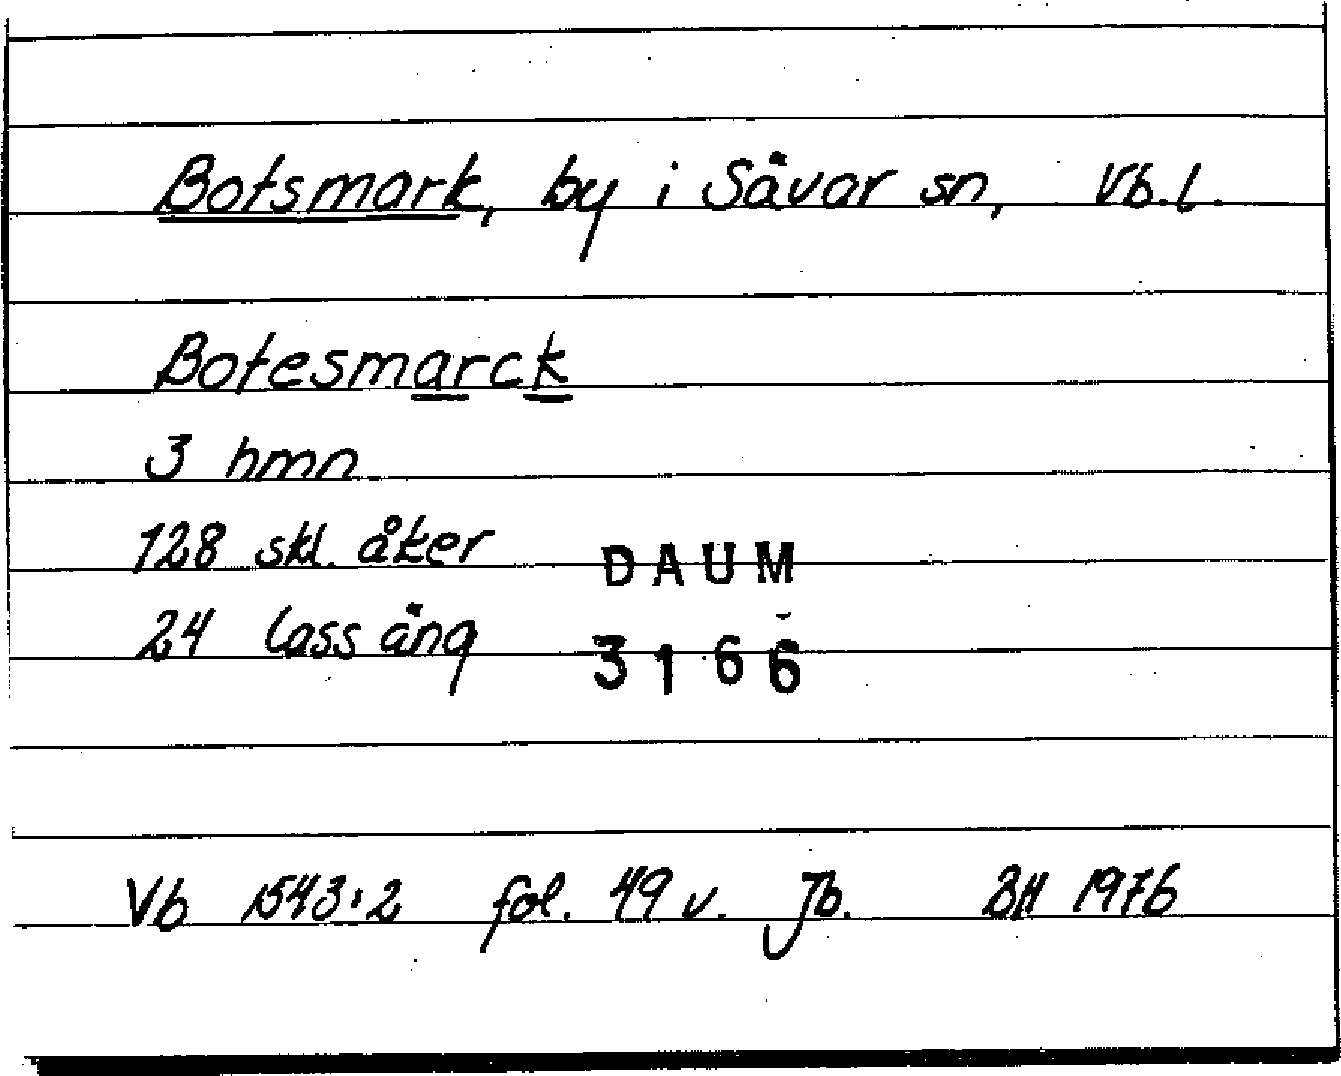 Botsmark, by i Sävar sn, Vb.l.
Botesmarck
3 hmn
128 skl. åker
DAUM
24 lass äng
3166
Vb 1543:2 fol. 49 v. Jb. BH 1976